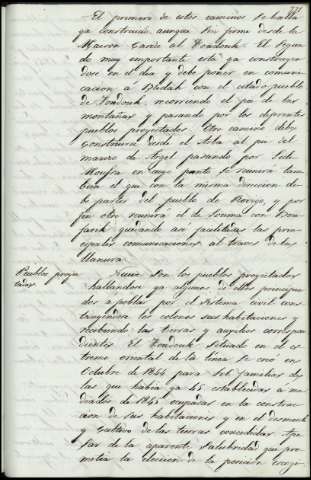 271
El primero de estos caminos se halla
ya construido aunque sin firme desde la
Maison Carrée al Fondouk. El segun
do muy importante está ya construyen
dose en el dia y debe poner en comuni
cacion a Blidah con el citado pueblo
de Fondouk, recorriendo el pié de las
montañas y pasando por los diferentes
pueblos proyectados. Otro camino debe
construirse desde el Arba al pie del
macizo de Argel pasando por Sidi
Moussa en cuyo punto se reunirá tam
bien el que con la misma direccion de
be partir del pueblo de Rovigo, y por
fin otro reunirá el de Souma con Bou
farik quedando asi facilitadas las prin
cipales comunicaciones al traves de la
llanura.
Pueblos proyec
tados
Nueve son los pueblos proyectados
hallandose ya algunos de ellos principia
dos a poblar por el sistema civil cons
truyendose los colonos sus habitaciones y
recibiendo las tierras y auxilios correspon
dientes. El Fondouk situado en el es
tremo oriental de la linea se creó en
Octubre de 1844 para 150 familias de
las que habia ya 45 establecidas a me
diados de 1845 ocupadas en la construc
cion de sus habitaciones y en el desmonte
y cultivo de las tierras concedidas. Ape
sar de la aparente salubridad que pro
metia la eleccion de la posicion escogi